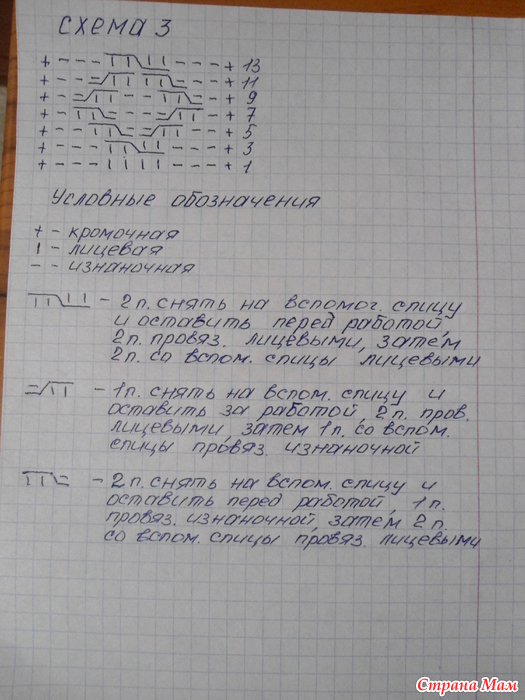 Схема 3
+ - - - | | | | - - - + 13
+ - - | | | | - - + 11
+ - | | - - | | - + 9
+ - | | - - | | - + 7
+ - - | | - - | | - - + 5
+ - - - | | | | - - - + 3
+ - - - | | | | - - - + 1
Условные обозначения
+ - кромочная
| - лицевая
- - изнаночная
- 2п. снять на вспомог. спицу
и оставить перед работой,
2п. провяз. лицевыми, затем
2п. со вспом. спицы лицевыми
- 1п. снять на вспом. спицу и
оставить за работой, 2п. пров.
лицевыми, затем 1п. со вспом.
спицы провяз. изнаночной
- 2п. снять на вспом. спицу и
оставить перед работой, 1п.
провяз. изнаночной, затем 2п.
со вспом. спицы провяз. лицевыми
Страна Мам